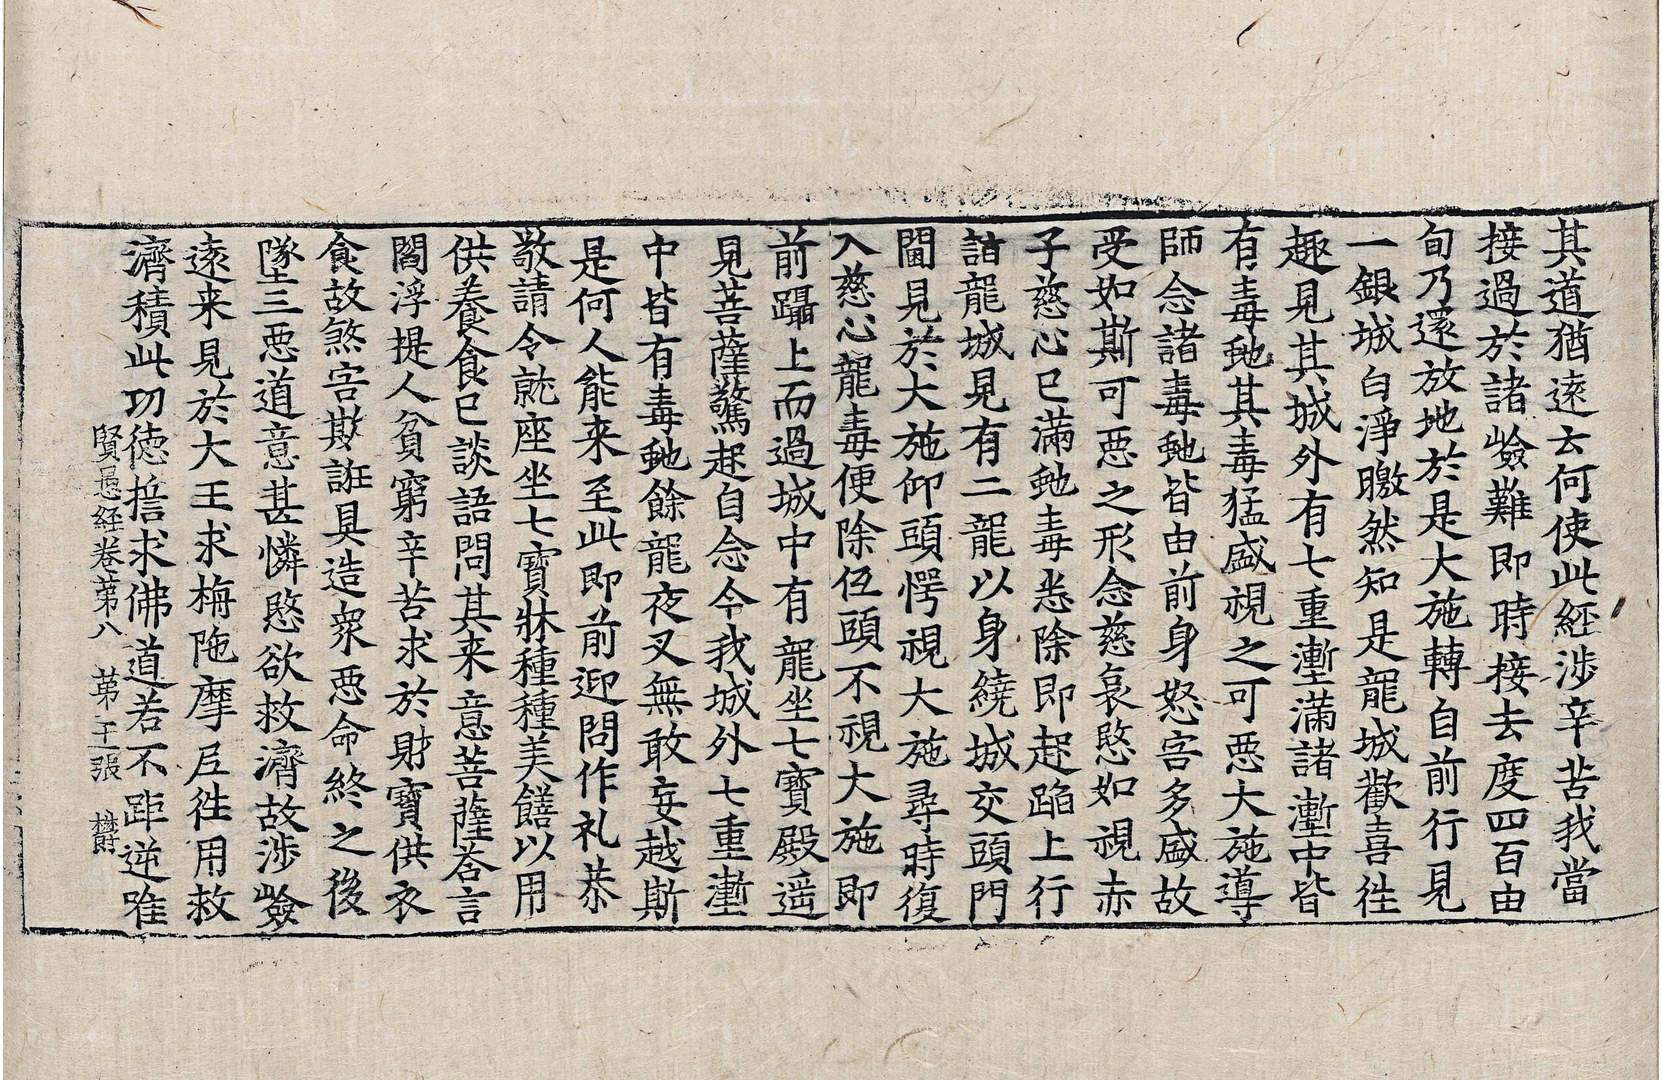 其道猶遠云何使此經涉辛苦我當
接過於諸嶮難即時接去度四百由
旬乃還放地於是大施轉自前行見
一銀城白淨曒然知是龍城歡喜徃
趣見其城外有七重塹滿諸塹中皆
有毒虵其毒猛盛視之可惡大施導
師念諸毒虵皆由前身怒害多盛故
受如斯可惡之形念慈哀愍如視赤
子慈心已滿虵毒悉除即起蹈上行
詣龍城見有二龍以身繞城交頭門
閫見於大施仰頭愕視大施尋時復
入慈心龍毒便除伍頭不視大施即
前躡上而過城中有龍坐七寶殿遥
見菩薩驚起自念今我城外七重塹
中皆有毒虵餘龍夜叉無敢妄越斯
是何人能來至此即前迎問作礼恭
敬請令就座坐七寶牀種種美饍以用
供養食已談語問其来意菩薩荅言
閻浮提人貧窮辛苦求於財寶供衣
食故煞害欺誑具造衆惡命終之後
墜三惡道意甚憐愍欲救濟故涉嶮
遠来見於大王求栴陁摩尼徃用救
濟積此功德揩求佛道若不距逆唯
賢愚經卷第八　第　張　欝